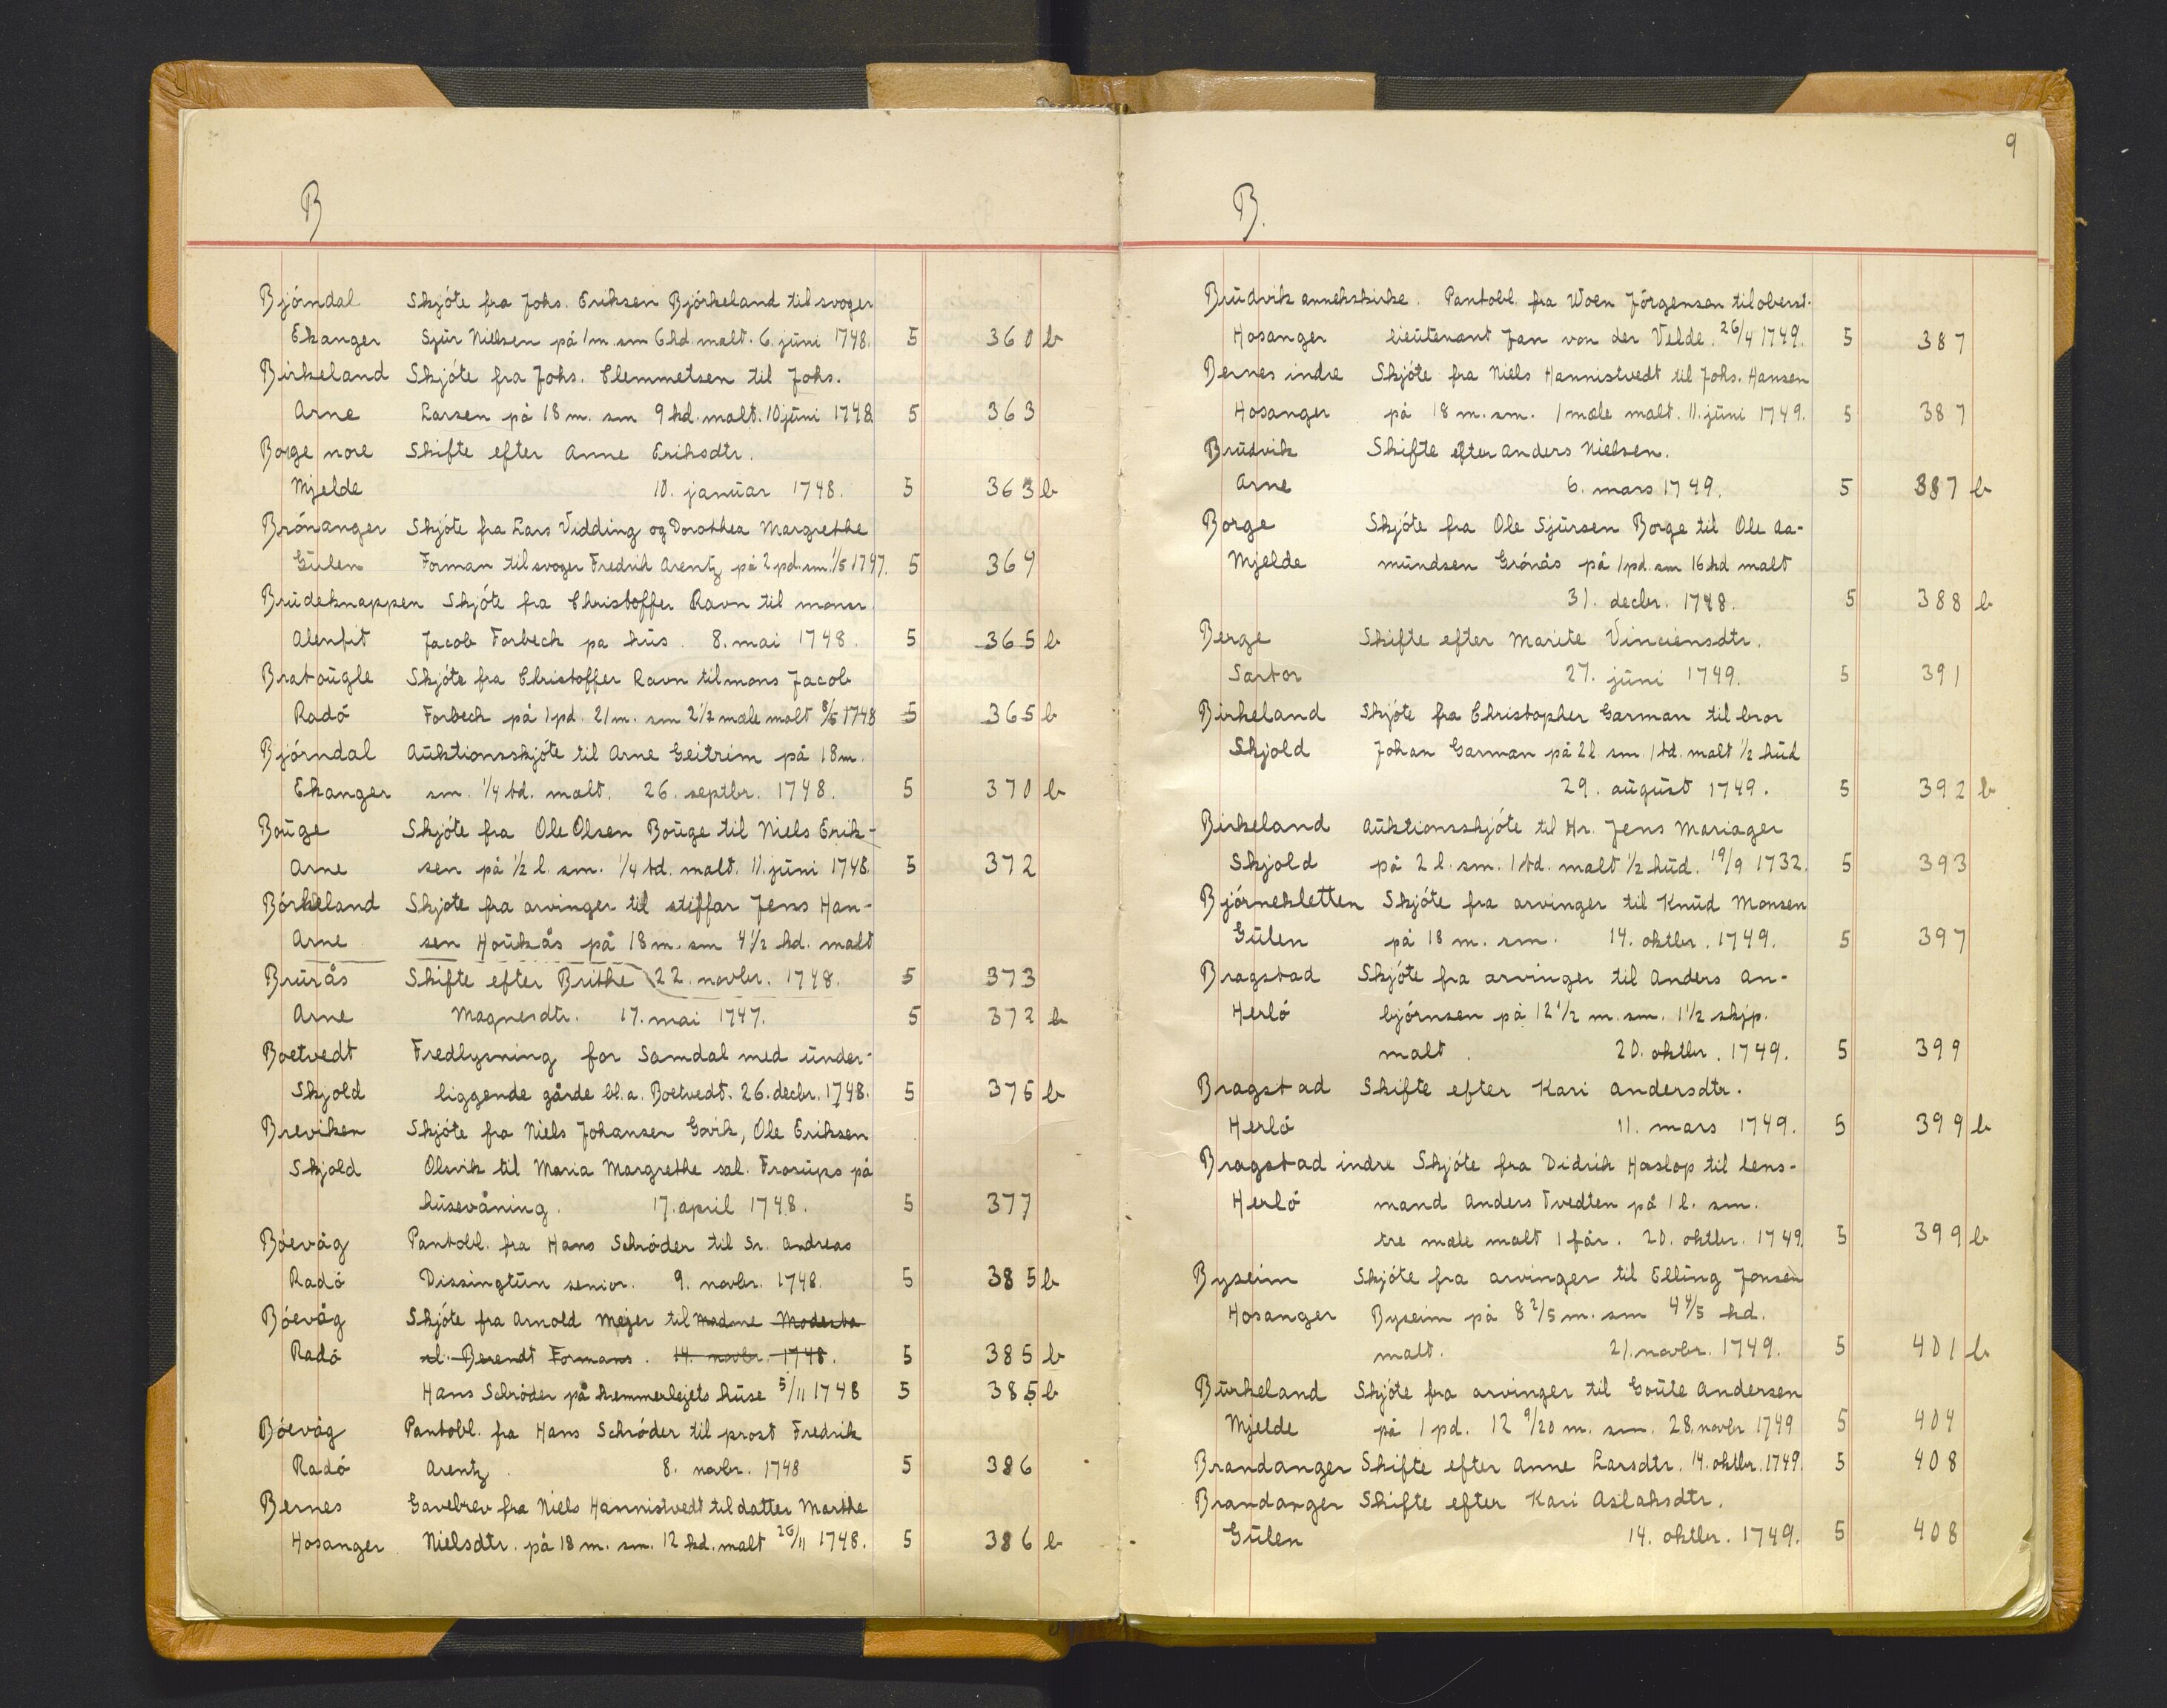 B
Bjórndal Skjóte fra Johs. Eriksen Bjórkeland til svoger
Ekanger Sjür Nielsen på 1 m. sm 6 kd. malt. 6. jüni 1748. 5 360 b
Birkeland Skjóte fra Johs. Clemmetsen til Johs.
Arne Larsen på 18 m. sm 9 kd. malt. 10 jüni 1748 5 363
Borge nore Skifte efter Anne Eriksdtr.
Mjelde 10. janüar 1748. 5 363 b
Brónanger Skjóte fra Lars Vidding og Dorothea Margrethe
Gülen Forman til svoger Fredrik Arentz på 2 pd. sm. 1/5 1747. 5 364
Brüdeknappen Skjóte fra Christoffer Ravn til monsr.
Alenfit Jacob Forbech pa hüs. 8. mai 1748. 5 365 b
Bratoügle Skjóte fra Christoffer Ravn til mons Jacob
Radó Forbech på 1 pd. 21 m. sm 2 1/2 mæle malt 8/5 1748 5 365 b
Bjórndal Aüktionsskjóte til Arne Geitrim på 18 m.
Ekanger sm. 1/4 td. malt. 26. septbr. 1748. 5 370 b
Boüge Skjóte fra Ole Olsen Boüge til Niels Erik-
Arne sen på 1/2 l. sm. 1/4 td. malt. 11. jüni 1748. 5 372
Bórkeland Skjote fra arvinger til stiffar Jens Han-
Arne sen Hoükås på 18 m. sm 4 1/2 kd. malt
Brürås Skifte efter Brithe 22. novbr. 1748. 5 373
Arne Magnesdtr. 17. mai 1747. 5 372 b
Boetvedt Fredlysning for Samdal med ünder-
Skjold liggende gårde bl. a. Boetvedt. 26. decbr. 1748. 5 376 b
Breviken Skjóte fra Niels Johansen Govik, Ole Eriksen
Skjold Olsvik til Maria Margrethe sal. Frorüps på
hüsevåning. 17. april 1748. 5 377
Bóevåg Pantobl. fra Hans Schróder til Sr. Andreas
Radó Dissingtün senior. 9. novbr. 1748. 5 385 b
Bóevåg Skjóte fra Arnold Mejer til Madame
Radó sl. Berendt Formans. 14. novbr. 1748. 5 385 b
Hans Schróder på kremmerlejets hüse 5/11 1748 5 385 b
Bóevåg Pantobl. fra Hans Schróder til prost Fredrik
Radó Arentz. 8. novbr. 1748 5 386
Bernes Gavebrev fra Niels Hannistvedt til datter Marthe
Hosanger Nielsdtr. på 18 m. sm. 12 kd. malt 26/11 1748. 5 386 b
9
B.
Brüdvik annekskirke. Pantobl. fra Woen Jórgensen til oberst-
Hosanger lieütenant Jan von der Velde. 26/4 1749. 5 387
Bernes indre Skjóte fra Niels Hannistvedt til Johs. Hansen
Hosanger på 18 m. sm. 1 mæle malt. 11. jüni 1749. 5 387
Brüdvik Skifte efter Anders Nielsen.
Arne 6. mars 1749. 5 387 b
Borge Skjóte fra Ole Sjürsen Borge til Ole Aa-
Mjelde mündsen Grónås på 1 pd. sm 16 kd malt
31. decbr. 1748. 5 388 b
Berge Skifte efter Marite Vinciensdtr.
Sartor 27. jüni 1749. 5 391
Birkeland Skjóte fra Christopher Garman til bror
Skjold Johan Garman på 2 l. sm. 1 td. malt 1/2 hüd
29. aügüst 1749. 5 392 b
Birkeland Aüktionsskjóte til Hr. Jens Mariager
Skjold på 2 l. sm. 1 td. malt 1/2 hüd. 19/9 1732. 5 393
Bjórnekletten Skjóte fra arvinger til Knüd Monsen
Gülen på 18 m. sm. 14. oktbr. 1749. 5 397
Bragstad Skjóte fra arvinger til Anders An-
Herló bjórnsen på 12 1/2 m. sm. 1 1/2 skjp.
malt. 20. oktbr. 1749. 5 399
Bragstad Skifte efter Kari Andersdtr.
Herló 11. mars 1749. 5 399 b
Bragstad indre Skjóte fra Didrik Haslop til lens-
Herló mand Anders Tvedten på 1 l. sm.
tre mæle malt 1 får. 20. oktbr. 1749. 5 399 b
Byseim Skjóte fra arvinger til Elling Jonsen
Hosanger Byseim på 8 2/5 m. sm 4 4/5 kd.
malt. 21. novbr. 1749. 5 401 b
Bürkeland Skjóte fra arvinger til Goüte Andersen
Mjelde på 1 pd. 12 9/20 m. sm. 28. novbr 1749 5 404
Brandanger Skifte efter Anne Larsdtr. 14. oktbr. 1749. 5 408
Brandanger Skifte efter Kari Aslaksdtr.
Gülen 14. oktbr. 1749. 5 408